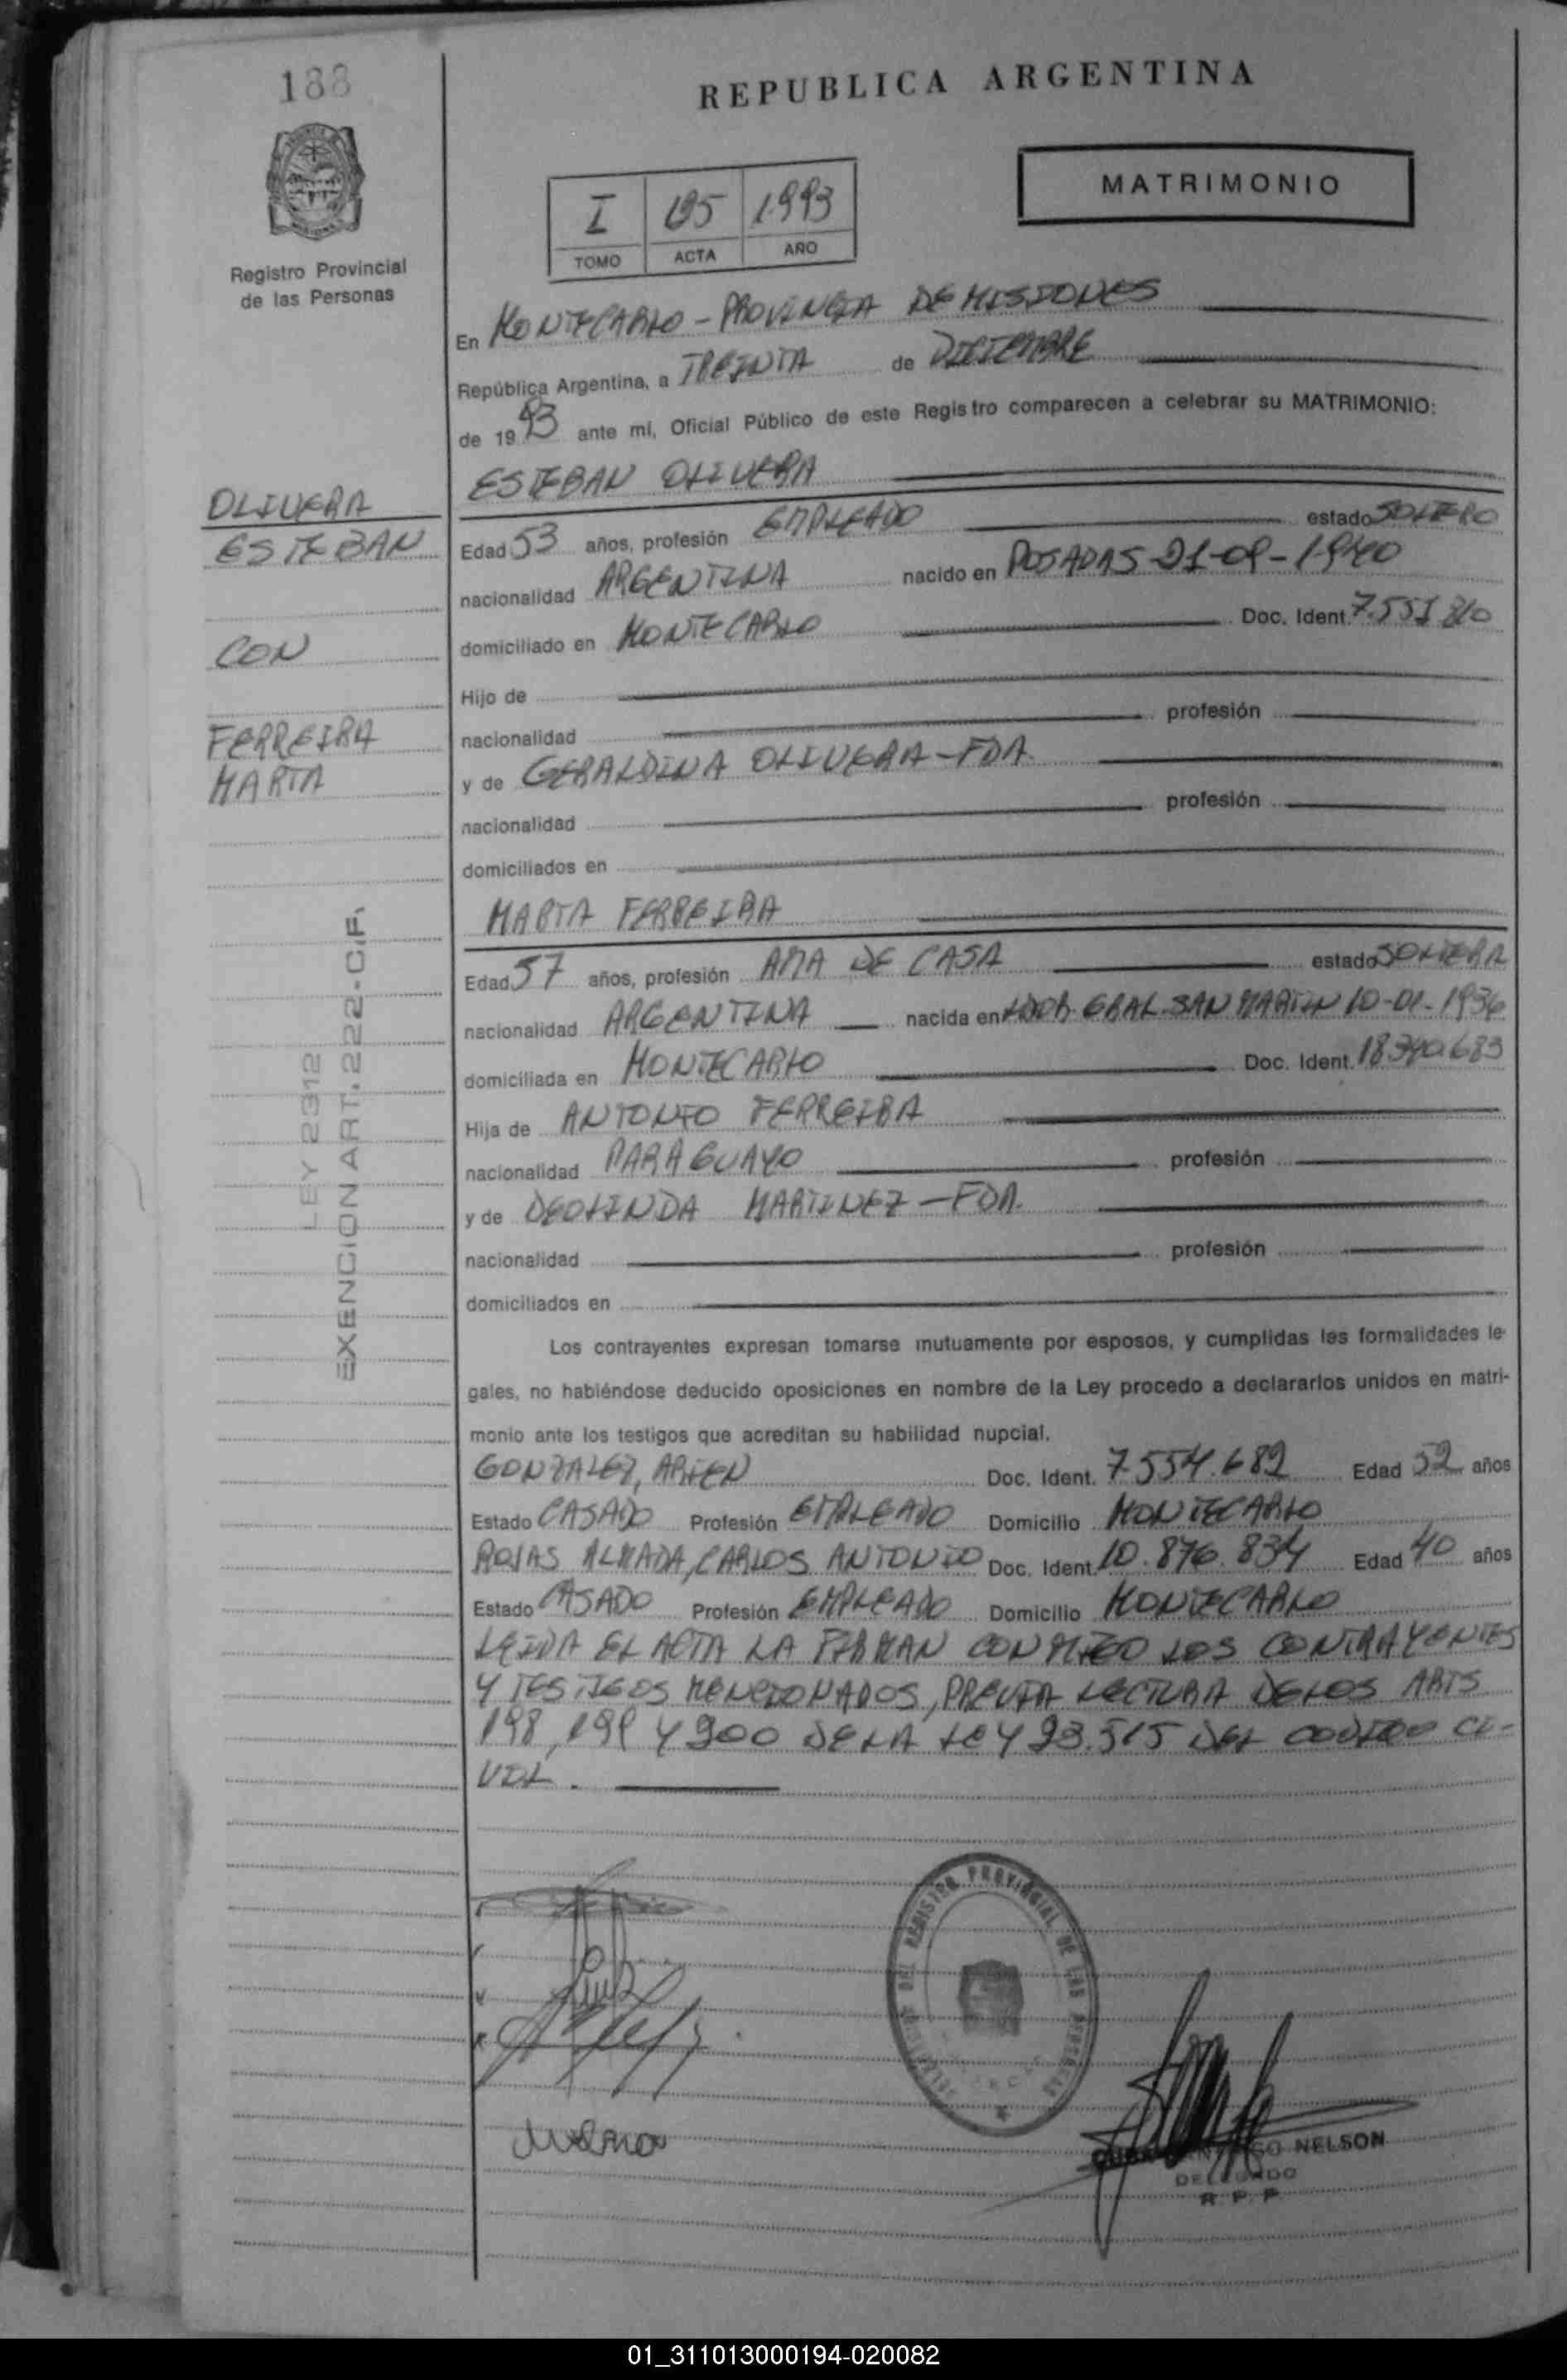 188
REPUBLICA ARGENTINA
MATRIMONIO
I 195 1993
TOMO ACTA AÑO
Registro Provincial
de las Personas
En MONTECARLO - PROVINCIA DE MISIONES
República Argentina, a TREINTA de DICIEMBRE
de 1993 ante mí, Oficial Público de este Registro comparecen a celebrar su MATRIMONIO:
ESTEBAN OLIVERA
OLIVERA
ESTEBAN
CON
FERREIRA
MARTA
LEY 2312
EXENCION ART. 222-C.F.
Edad 53 años, profesión EMPLEADO estado SOLTERO
nacionalidad ARGENTINA nacido en POSADAS 21-09-1940
domiciliado en MONTECARLO Doc. Ident. 7.551.310
Hijo de
nacionalidad profesión
y de GERALDINA OLIVERA - FDA.
nacionalidad profesión
domiciliados en
MARTA FERREIRA
Edad 57 años, profesión AMA DE CASA estado SOLTERA
nacionalidad ARGENTINA nacida en LDOR. GRAL. SAN MARTIN 10-01-1936
domiciliada en MONTECARLO Doc. Ident. 18.340.683
Hija de ANTONIO FERREIRA
nacionalidad PARAGUAYO profesión
y de DEOLINDA MARTINEZ - FDA.
nacionalidad profesión
domiciliados en
Los contrayentes expresan tomarse mutuamente por esposos, y cumplidas las formalidades le-
gales, no habiéndose deducido oposiciones en nombre de la Ley procedo a declararlos unidos en matri-
monio ante los testigos que acreditan su habilidad nupcial.
GONZALEZ, ARLEN Doc. Ident. 7.554.689 Edad 52 años
Estado CASADO Profesión EMPLEADO Domicilio MONTECARLO
ROJAS ALMADA, CARLOS ANTONIO Doc. Ident. 10.876.834 Edad 40 años
Estado CASADO Profesión EMPLEADO Domicilio MONTECARLO
LEIDA EL ACTA LA FIRMAN CONMIGO LOS CONTRAYENTES
Y TESTIGOS MENCIONADOS, PREVIA LECTURA DE LOS ARTS
198, 199 Y 200 DE LA LEY 23.515 DEL CODIGO CI-
VIL.
DEL REGISTRO PROVINCIAL DE LAS PERSONAS
NELSON
DELEGADO
R. P. P.
01_311013000194-020082